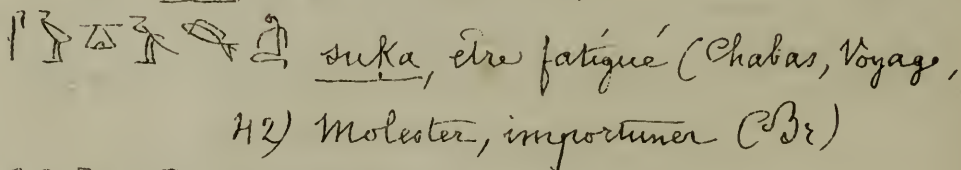 suka, être fatigué (Chabas, Voyage,
42) Molester, importuner (Br)